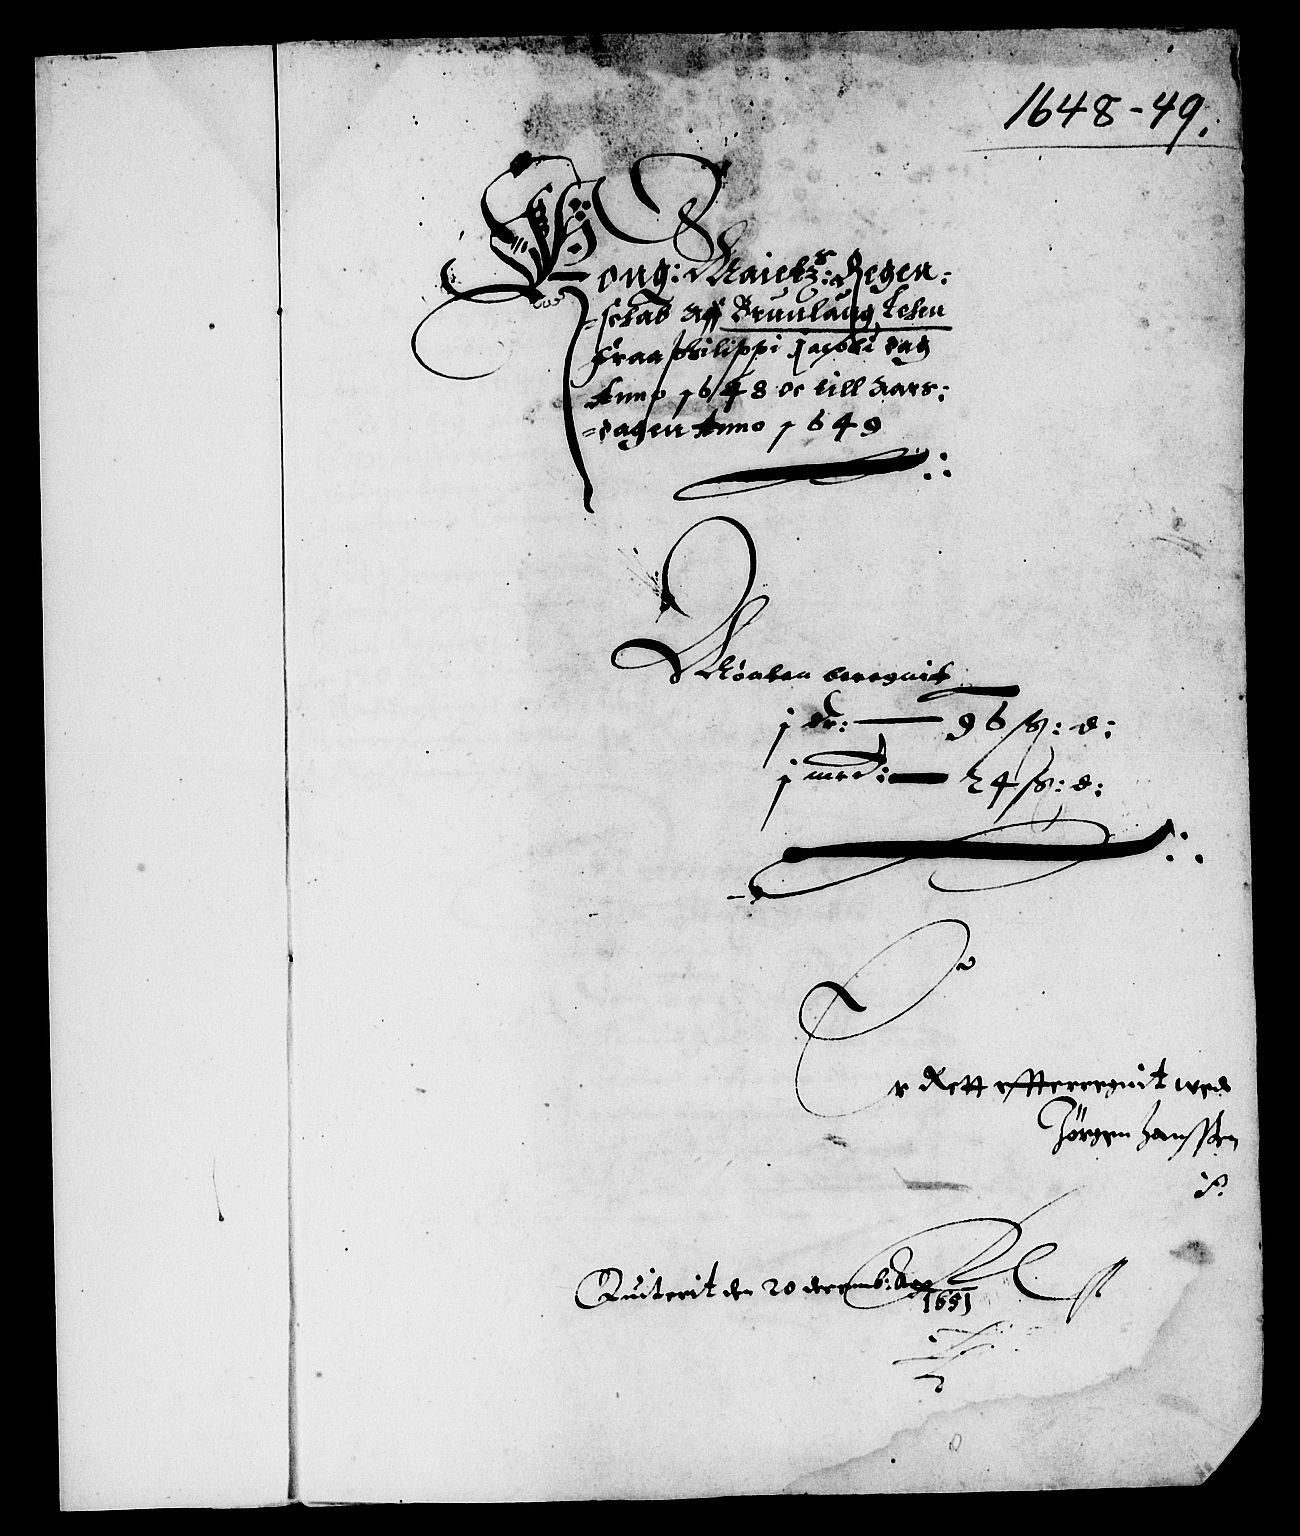 1648-49.
Kong: Maietz: Regen:
=schab Aff Brunlaug Lehn
Fraa philippi Jacobi dag
Anno 1648 oc till Aars:
=dagen Anno 1649
Mønten beregnit
j dr: — 96 ß: d:
j mrd: — 24 ß: d:
Er Rett efftereegnit wed
Jørgen Hanssen
Quiterit den 20 decemb: Ao
1651